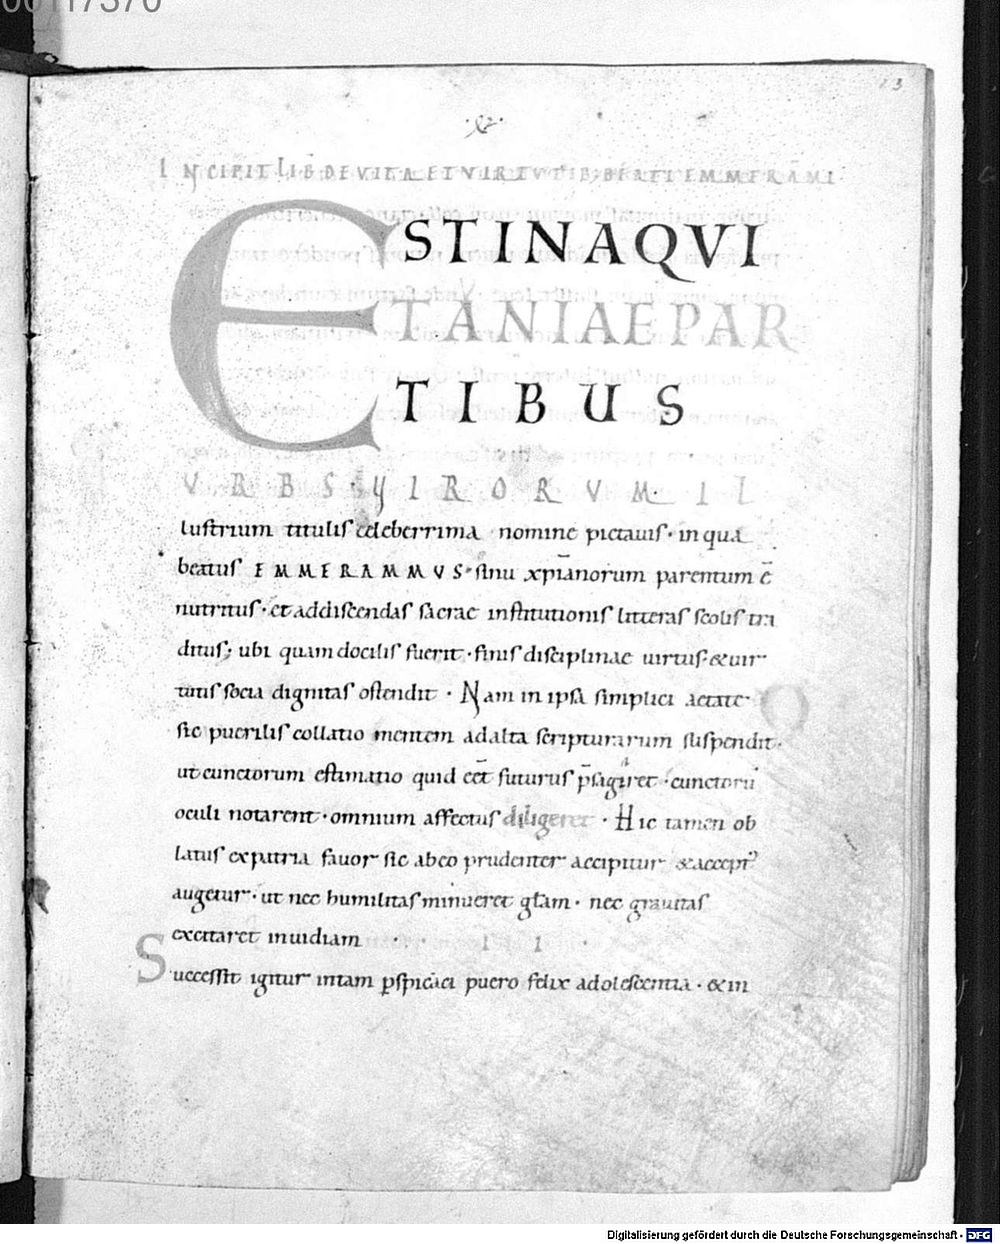 00117370
23
INCIPIT LIB DE VITA ET VIRTVTIB; BEATI EMMERĀMI
ESTINAQVI
TANIAEPAR
TIBUS
VRBS·VIRORVM·IL
lustrium titulis celeberrima nomine pictauis· in qua
beatus EMMERAMMVS· sinu xp̄ianorum parentum ē
nutritus· et addiscendas sacrae institutionis litteras scolis tra
ditus; ubi quam docilis fuerit· finis disciplinae uirtus· & uir
tutis socia dignitas ostendit· Nam in ipsa simplici aetate
sic puerilis collatio mentem ad alta scripturarum suspendit·
ut cunctorum estimatio quid eēt futurus p̄sagiret· cunctorū
oculi notarent· omnium affectus diligeret· Hic tamen ob
latus ex patria fauor sic ab eo prudenter accipitur & accept᾽
augetur· ut nec humilitas minueret gl̄am· nec grauitas
excitaret inuidiam II
Successit igitur in tam ꝑspicaci puero felix adolescentia· & in
Digitalisierung gefördert durch die Deutsche Forschungsgemeinschaft - DFG